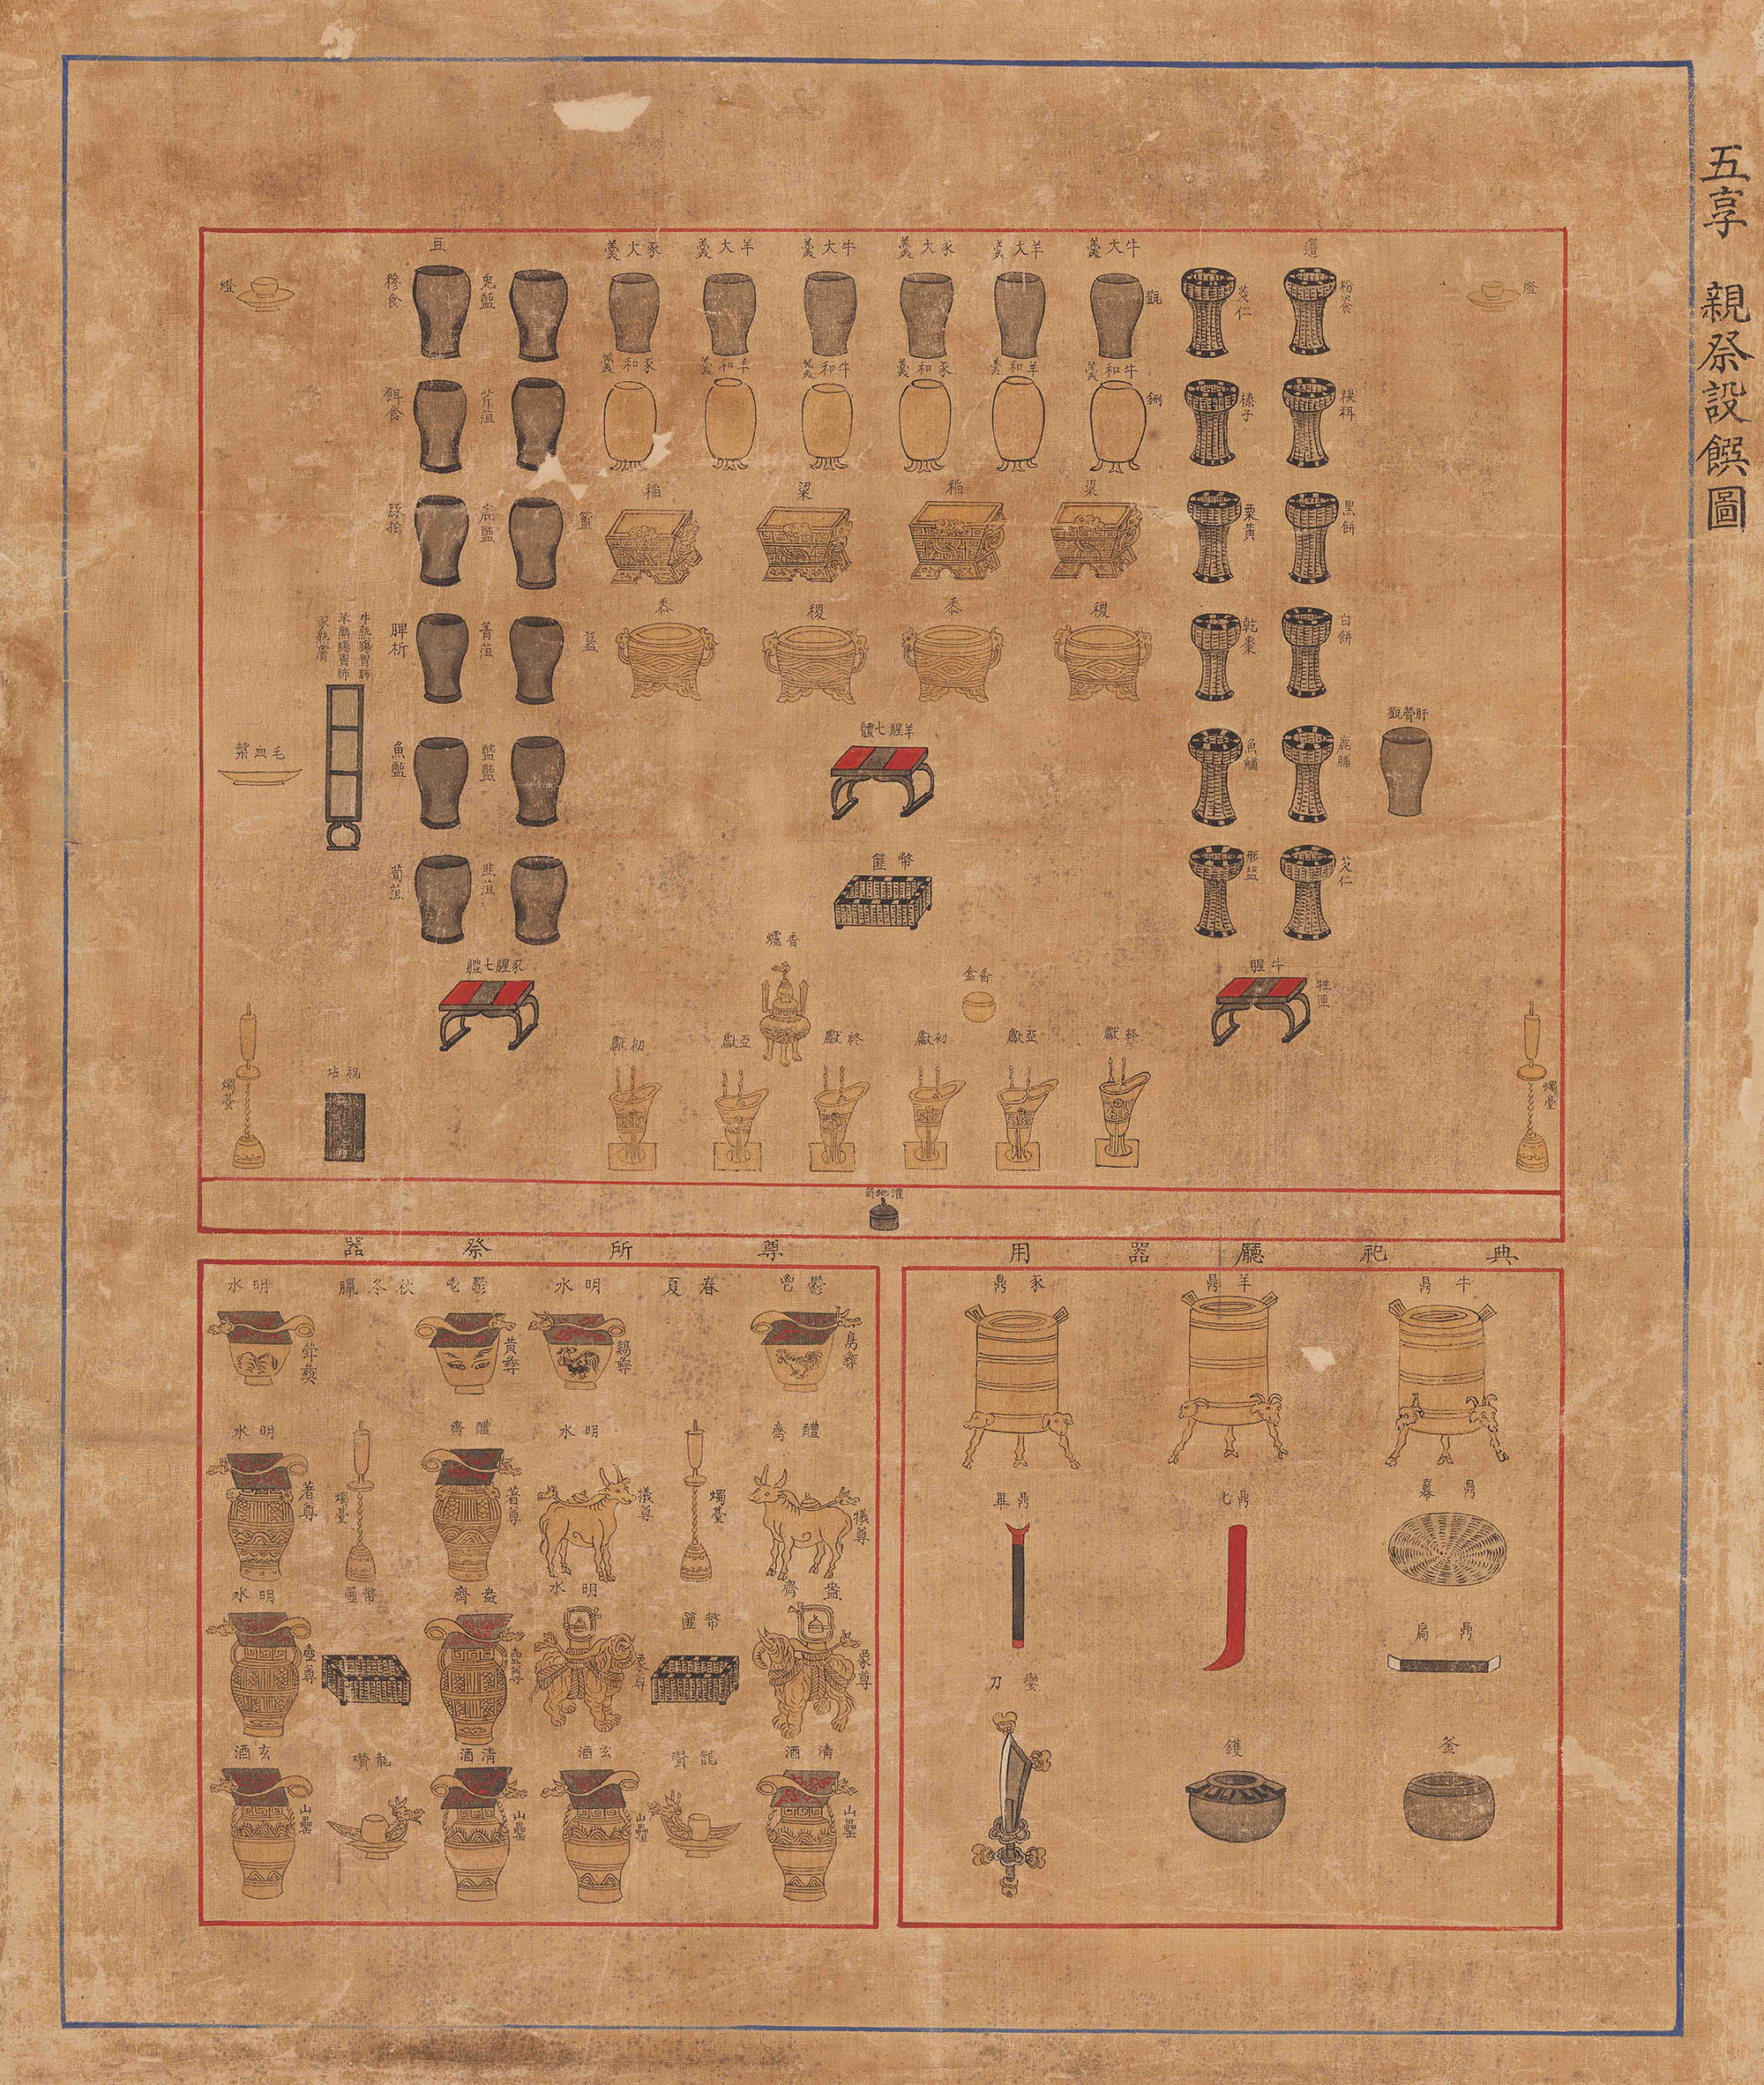 五享 親祭設饌圖
燈
籩
牛大羹
羊大羹
豕大羹
牛大羹
羊大羹
豕大羹
豆
燈
粉餈
菱仁
㽅
兔醢
糝食
牛和羹
羊和羹
豕和羹
牛和羹
羊和羹
豕和羹
榛子
鉶
芹菹
粱
稻
粱
稻
黑餅
栗黃
簠
鹿醢
豚拍
稷
黍
稷
黍
白餅
乾棗
簋
菁菹
脾析
牛熟腸胃肺
羊熟腸胃肺
豕熟膚
肝膋㽅
羊腥七體
鹿脯
魚鱐
醓醢
魚醢
毛血槃
幣篚
芡仁
形塩
韭菹
筍菹
香爐
牛腥
牲匣
香盒
豕腥七體
終獻
亞獻
初獻
終獻
亞獻
初獻
燭臺
祝坫
燭臺
灌地筩
典祀廳器用
尊所祭器
牛鼎
羊鼎
豕鼎
鼎冪
鼎匕
鼎畢
鼎扃
鸞刀
釜
鑊
鬱鬯
春夏
明水
鬱鬯
秋冬臘
明水
鳥彝
鷄彝
黃彝
斝彝
醴齊
明水
醴齊
明水
犧尊
燭臺
犧尊
著尊
燭臺
著尊
盎齊
幣篚
明水
盎齊
幣篚
明水
象尊
象尊
壺尊
壺尊
清酒
龍瓚
玄酒
清酒
龍瓚
玄酒
山罍
山罍
山罍
山罍